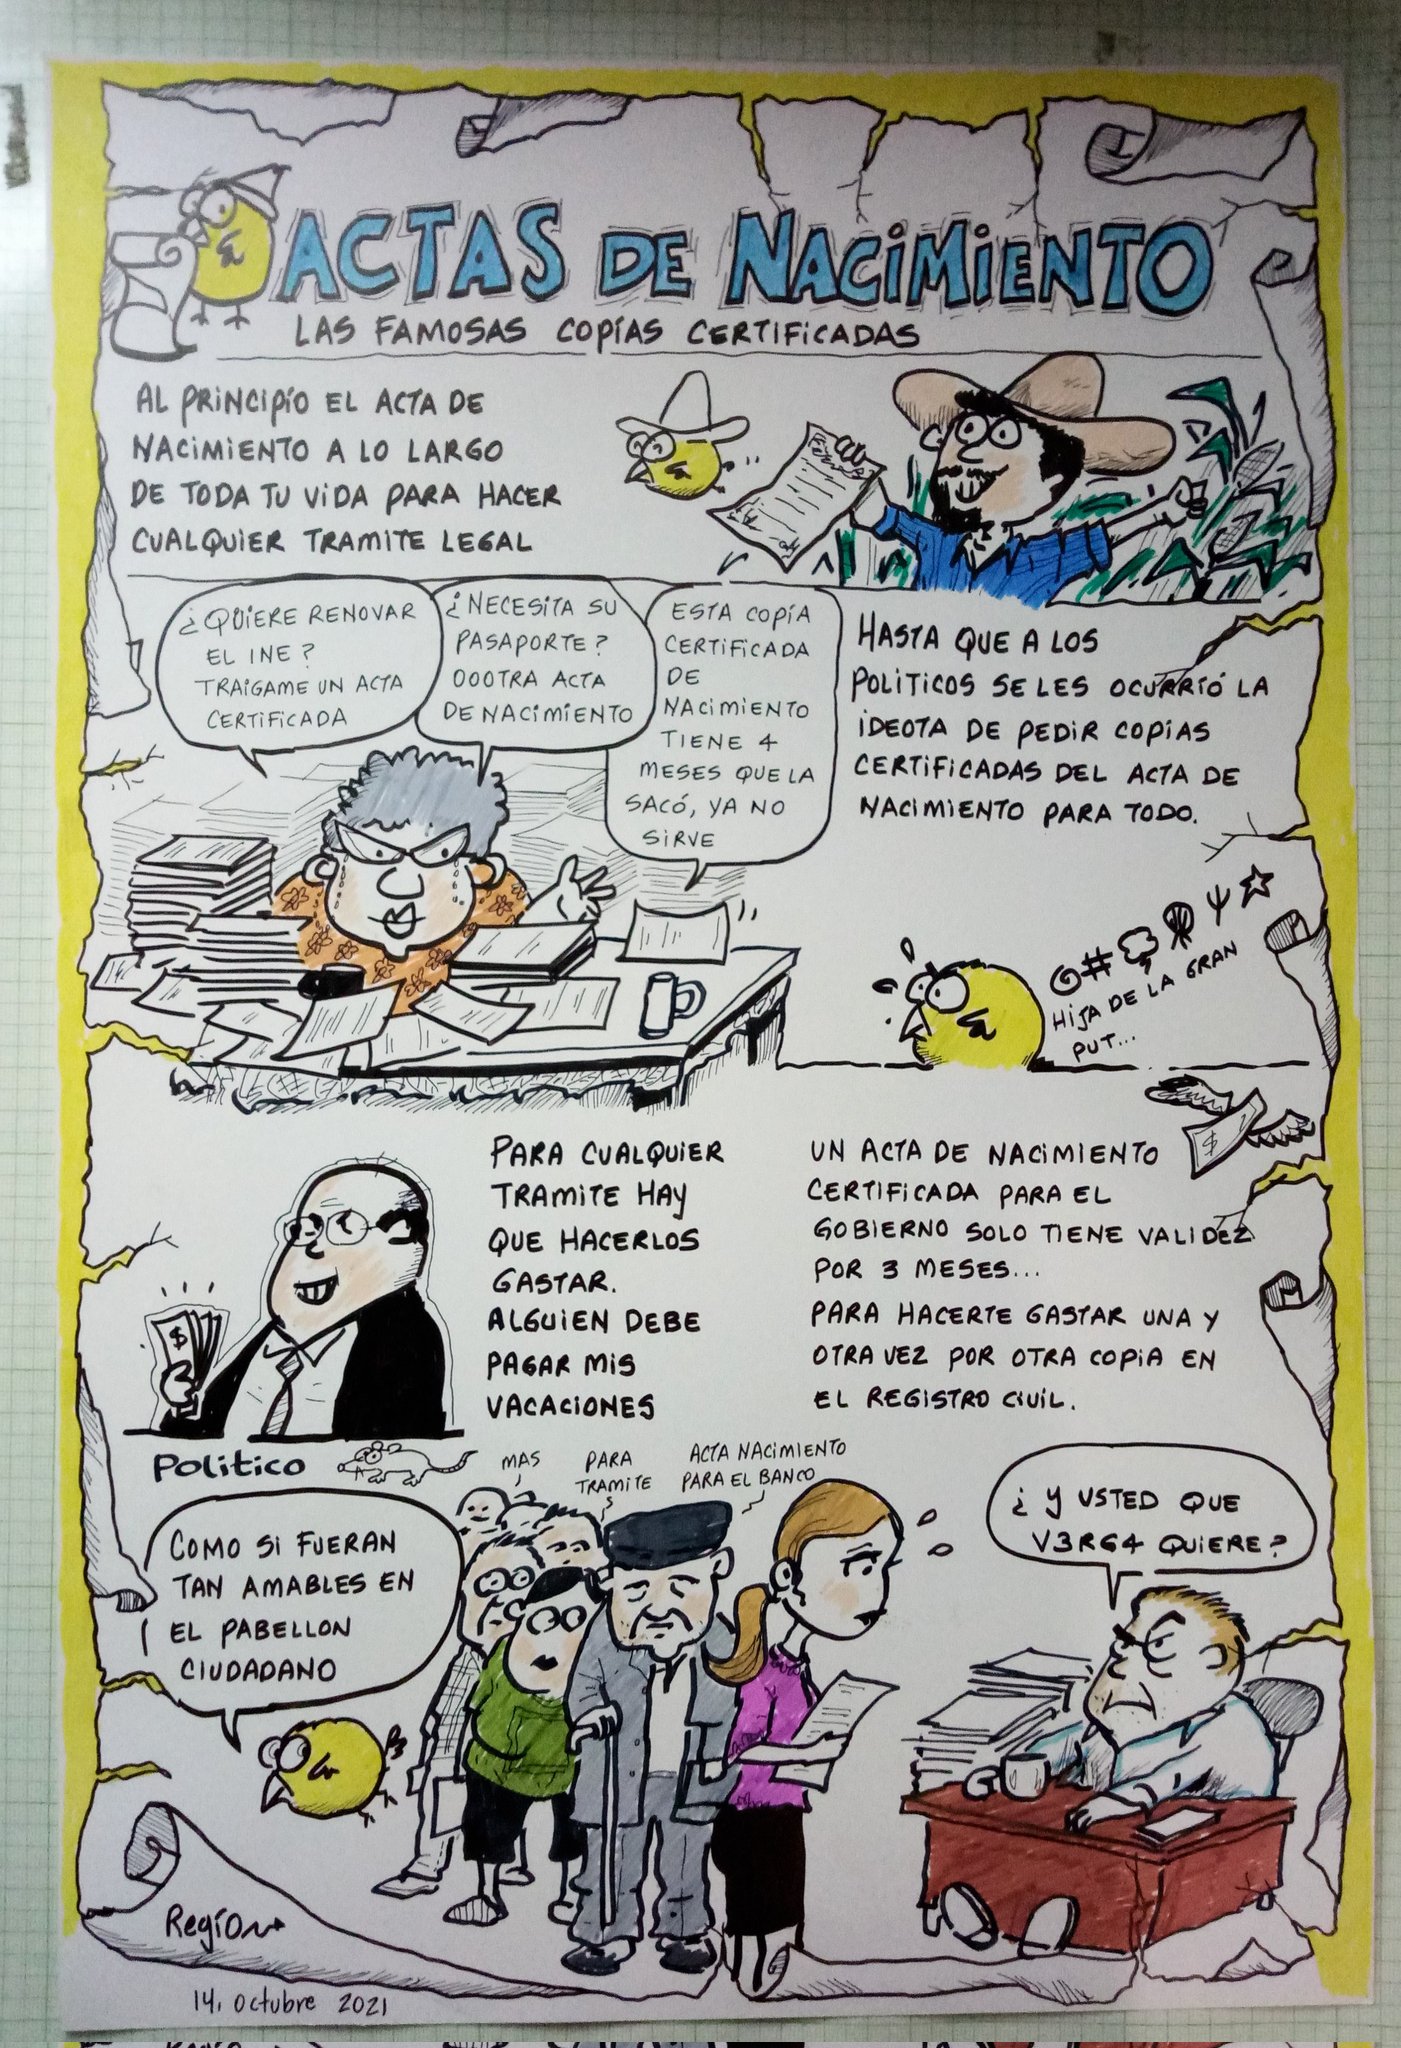 ACTAS DE NACIMIENTO
LAS FAMOSAS COPÍAS CERTIFICADAS
AL PRINCIPÍO EL ACTA DE
NACIMIENTO A LO LARGO
DE TODA TU VIDA PARA HACER
CUALQUIER TRAMITE LEGAL
¿QUIERE RENOVAR
EL INE?
TRAIGAME UN ACTA
CERTIFICADA
¿NECESITA SU
PASAPORTE?
OOOTRA ACTA
DE NACIMIENTO
ESTA COPÍA
CERTIFICADA
DE
NACIMIENTO
TIENE 4
MESES QUE LA
SACÓ, YA NO
SIRVE
HASTA QUE A LOS
POLITICOS SE LES OCURRIÓ LA
IDEOTA DE PEDIR COPIAS
CERTIFICADAS DEL ACTA DE
NACIMIENTO PARA TODO.
HIJA DE LA GRAN
PUT...
$
PARA CUALQUIER
TRAMITE HAY
QUE HACERLOS
GASTAR.
ALGUIEN DEBE
PAGAR MIS
VACACIONES
UN ACTA DE NACIMIENTO
CERTIFICADA PARA EL
GOBIERNO SOLO TIENE VALIDEZ
POR 3 MESES...
PARA HACERTE GASTAR UNA Y
OTRA VEZ POR OTRA COPIA EN
EL REGISTRO CIVIL.
$
Politico
MAS
PARA
TRAMITE
ACTA NACIMIENTO
PARA EL BANCO
¿Y USTED QUE
V3RG4 QUIERE?
COMO SI FUERAN
TAN AMABLES EN
EL PABELLON
CIUDADANO
Región
14, octubre 2021